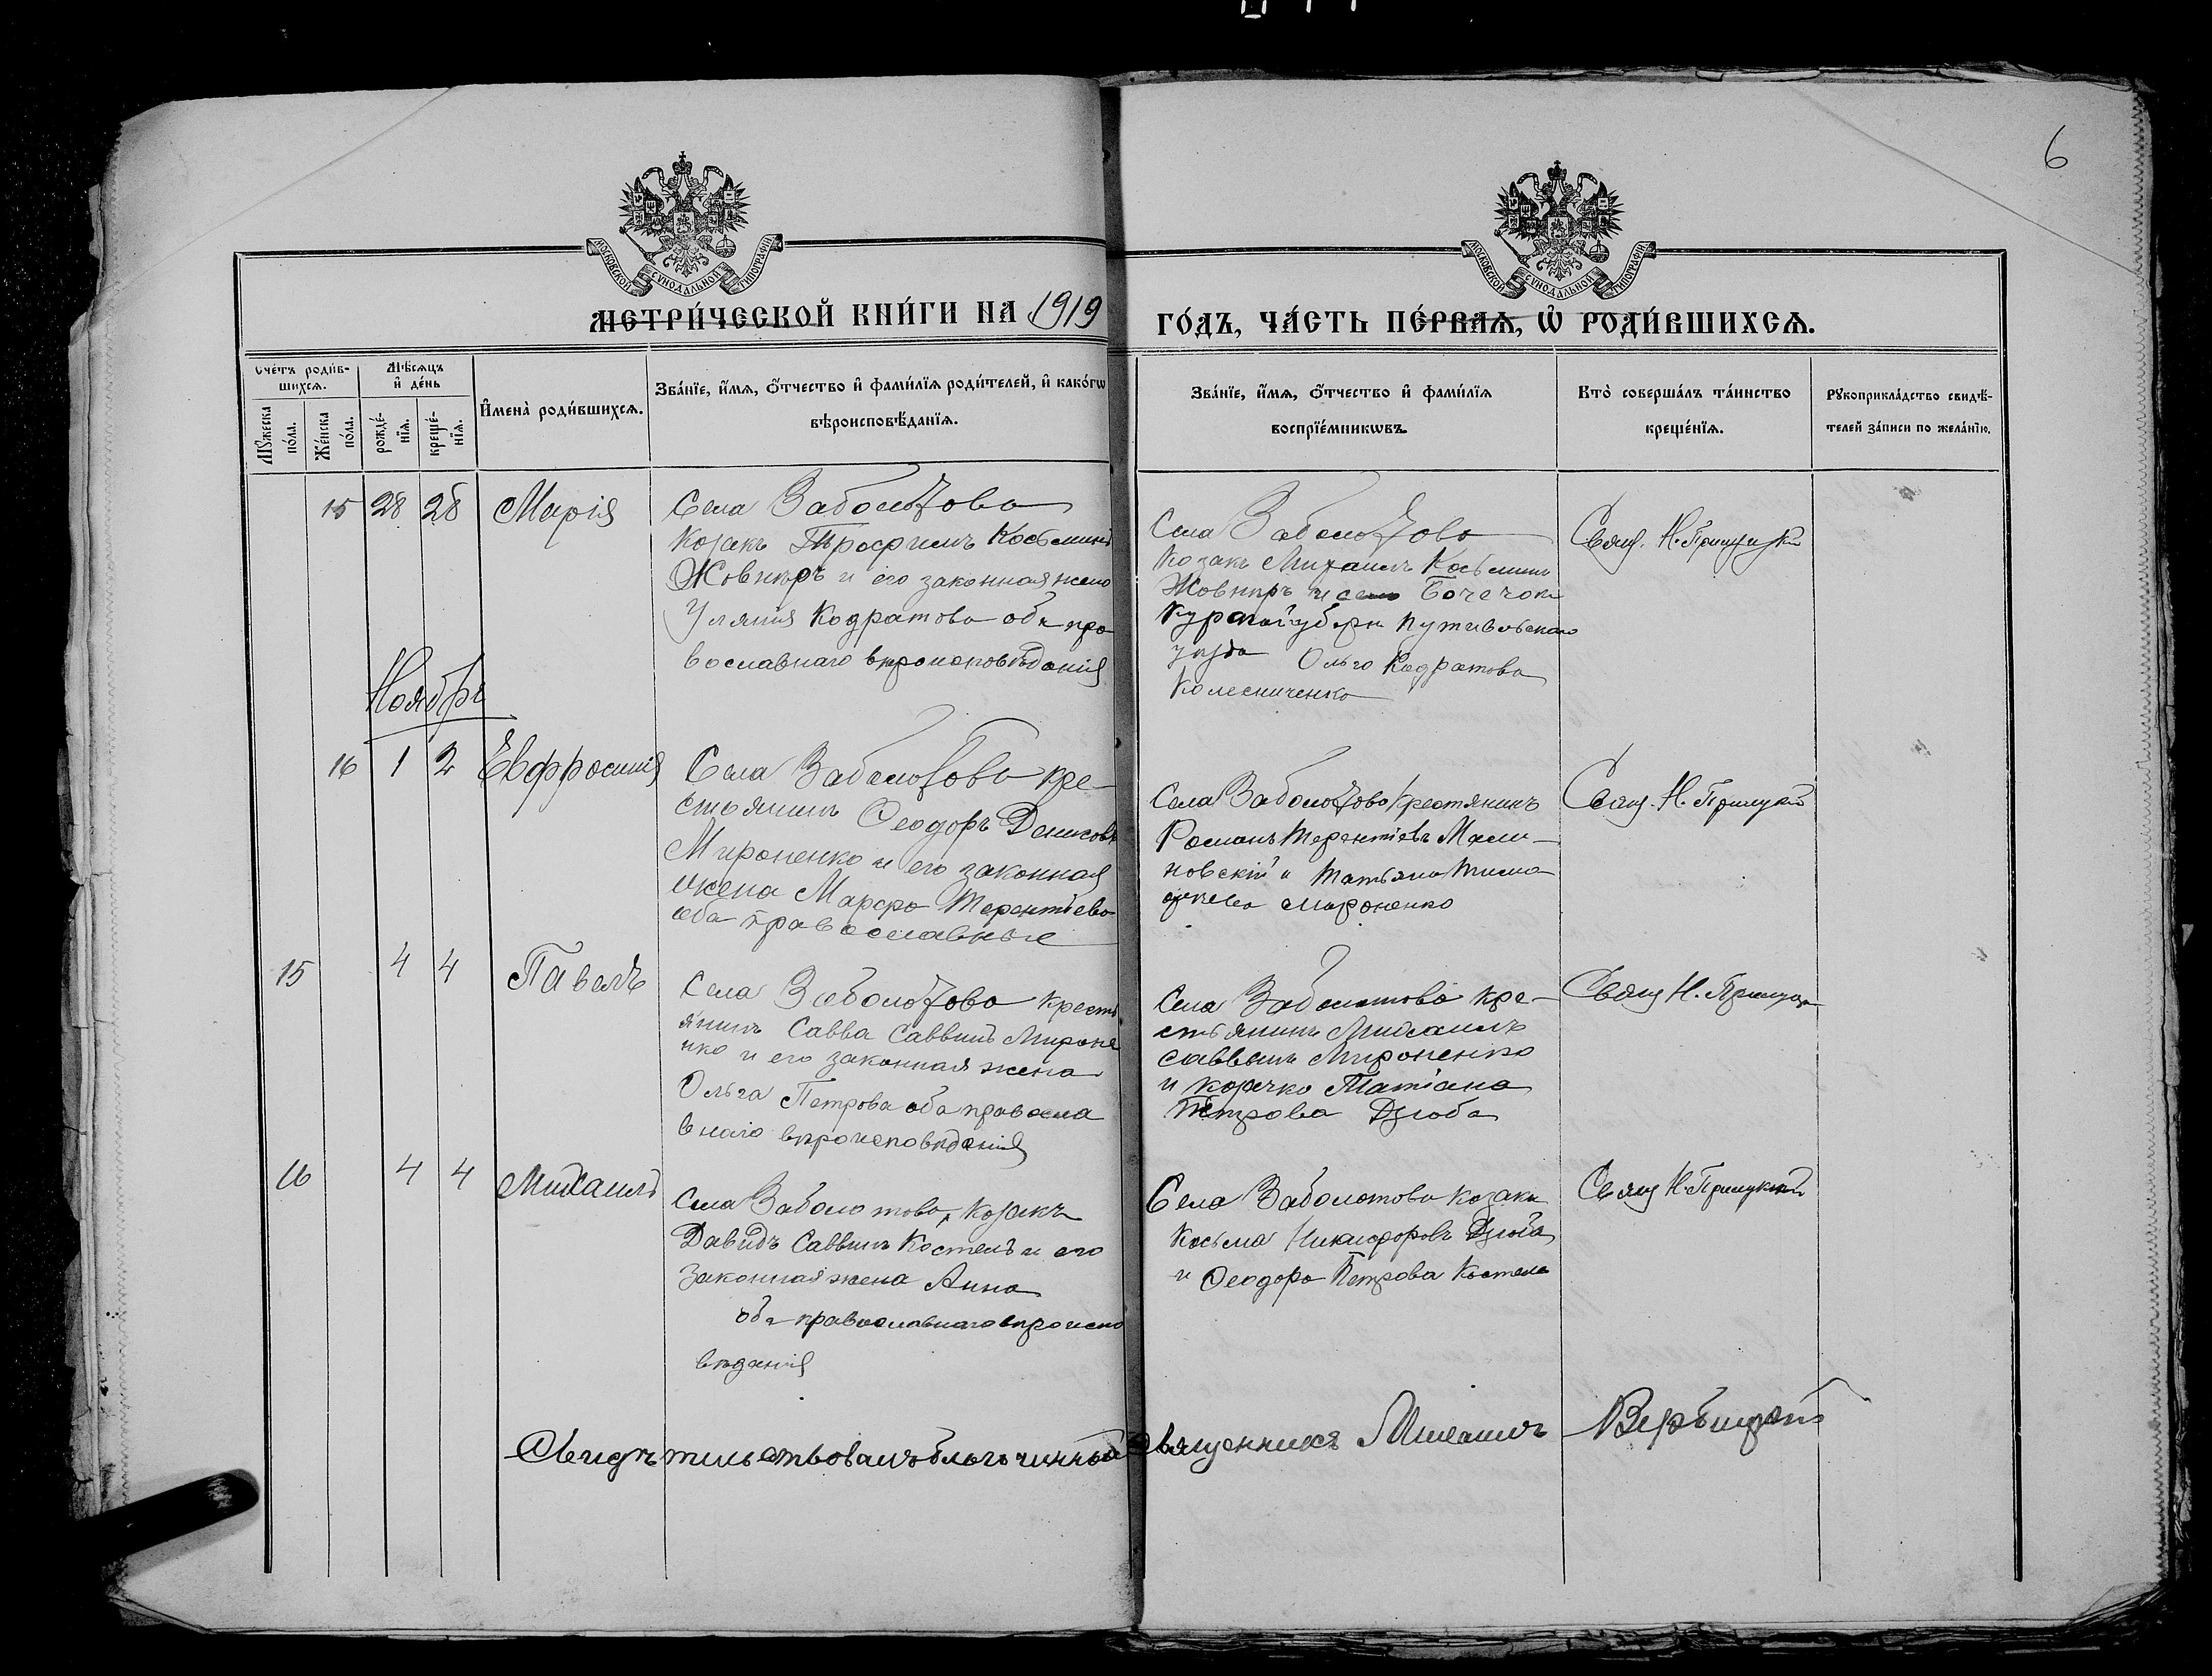 6
МОСКОВСКОЙ СУНОДАЛЬНОЙ ТИПОГРАФІИ
МОСКОВСКОЙ СУНОДАЛЬНОЙ ТИПОГРАФІИ
МЕТРИ́ЧЕСКОЙ КНИ́ГИ НА 1919
ГО́ДЪ, ЧА́СТЬ ПЕ́РВАѦ, Ѡ҆ РОДИ́ВШИХСѦ.
Сче́тъ роди́в-
шихсѧ.
Мѣ́сѧцъ
и҆ де́нь
Мꙋ́жеска
по́ла.
Же́нска
по́ла.
рожде́-
нїѧ.
креще́-
нїѧ.
И҆мена̀ роди́вшихсѧ.
Зва́нїе, и҆́мѧ, ѻ҆́тчество и҆ фами́лїѧ роди́телей, и҆ како́гѡ
вѣроисповѣ́данїѧ.
Зва́нїе, и҆́мѧ, ѻ҆́тчество и҆ фами́лїѧ
воспрїе́мникѡвъ.
Кто̀ соверша́лъ та́инство
креще́нїѧ.
Рꙋкоприкла́дство свидѣ́-
телей за́писи по жела́нїю.
15 28 28 Марія
Села Заболотова
Козакъ Трофимъ Косьминъ
Жовниръ и его законная жена
Уліянія Кодратова оба пра
вославнаго вѣроисповѣданія
Села Заболотова
Козакъ Михаилъ Косьминъ
Жовниръ и села Бочечокъ
Курской губерн Путивльскаго
уѣзда Ольга Кодратова
Колесниченко
Свящ. Н. Прилуцкій
Ноябрь
16 1 2 Евфросинія
Села Заболотова кре-
стьянинъ Ѳеодоръ Денисовъ
Мироненко и его законная
жена Марфа Терентіева
оба православные
Села Заболотова Крестянинъ
Романъ Терентіевъ Мали-
новскій и Татьяна Тимо
фѣева Мироненко
Свящ. Н. Прилуцкій
15 4 4 Павелъ
Села Заболотова Кресть
янинъ Савва Саввинъ Мироне
нко и его законная жена
Ольга Петрова оба правосла
внаго вѣроисповѣданія
Села Заболотова кре-
стьянинъ Михаилъ
Саввинъ Мироненко
и козачка Татіана
Петрова Дзюба
Свящ Н. Прилуцкій
16 4 4 Михаилъ
Села Заболотова, козакъ
Давидъ Саввинъ Костель и его
законная жена Анна
оба православнаго вѣроиспо
вѣданія
Села Заболотова козакъ
Косьма Никифоровъ Дзюба
и Ѳеодора Петрова Костель
Свящ Н. Прилуцкій
Свидѣтельствовалъ благочинный священникъ Михаилъ Вербицкій